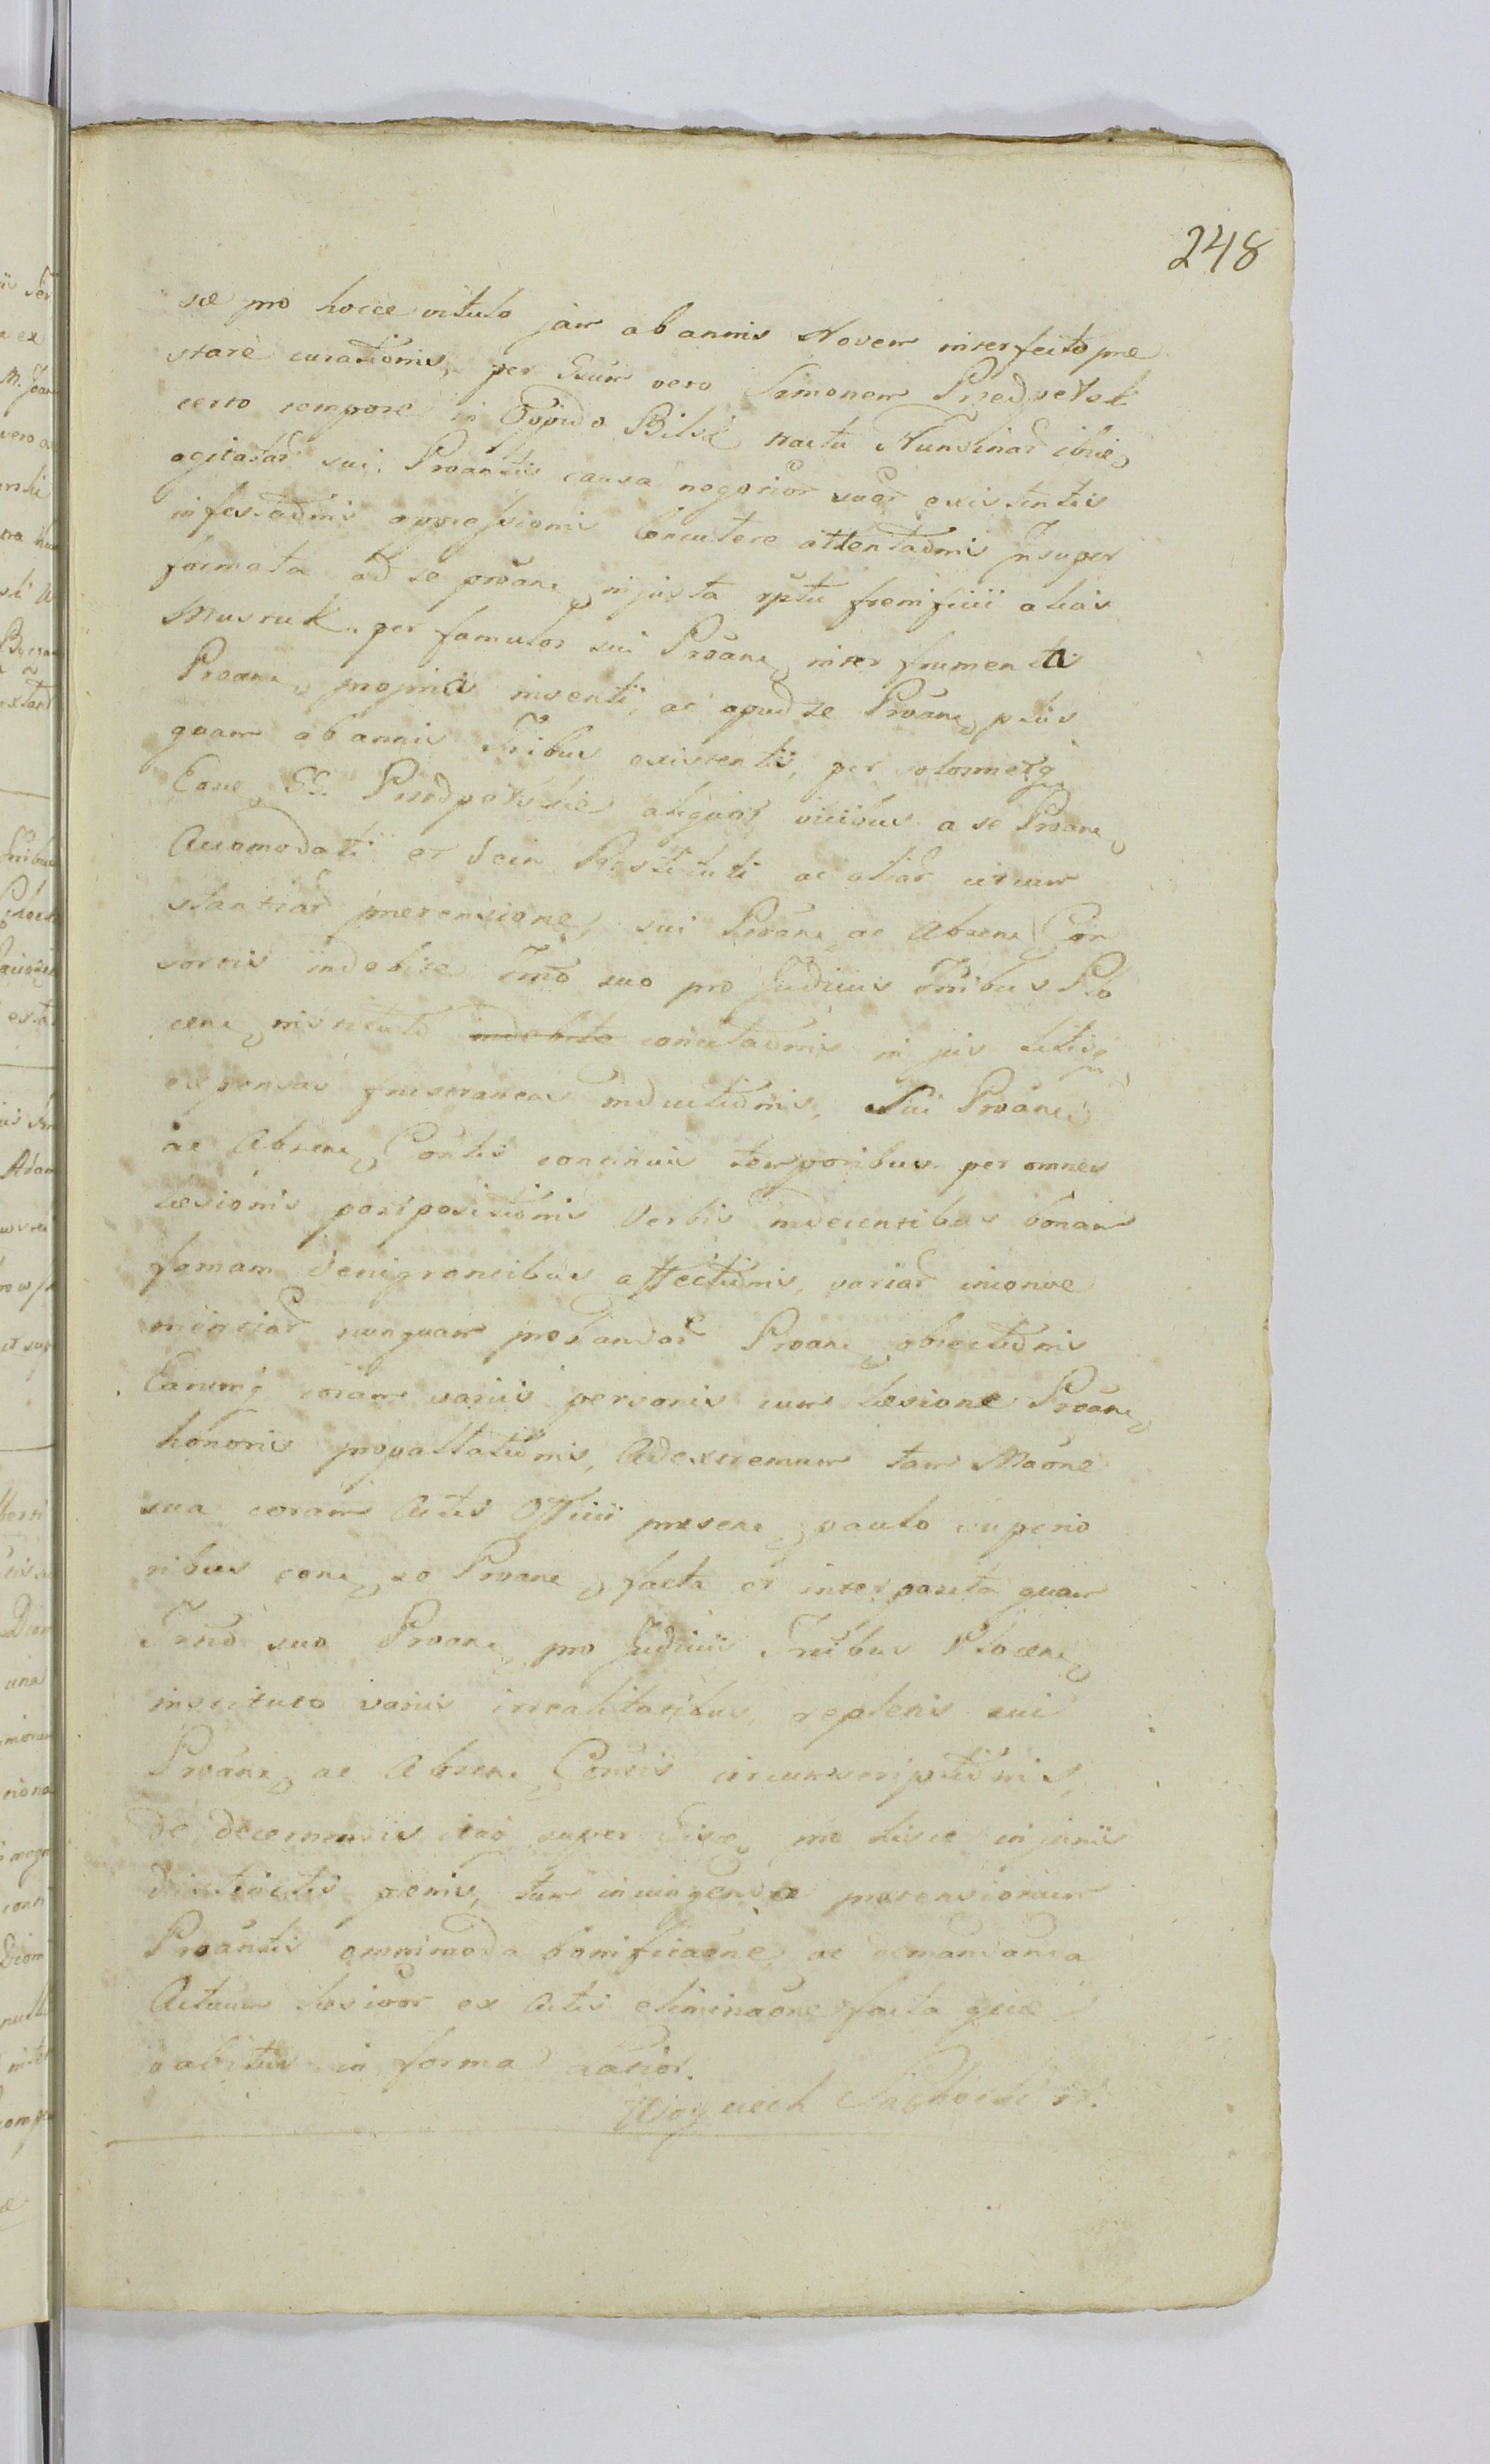 248
sæ pro hocce vitulo jam ab annis Novem interfecto præ
stare curationis, per Eum vero Simonem Przedpełsk
certo tempore in Oppido Bilsk tractu Nundinar̃ ibid.
agitatar̃ sui Proantis causa negotior̃ suor̃ existentis
infestaõnis oppressionis concutere attentaõnis Insuper
formata ad se proãne injusta rptu frenificii alias
Musztuk per famulos sui Proãne inter frumenta
Proane propria inventi, ac apud se Proãne plus
quam ab annis Tribus existentis, per
Eone GG. Przedpełskie aliquot vicibus a se Proane
Accomodati et dein Restituti ac aliar̃ circum
stantiar̃ prætensione, sui Proãne ac Absene Con
sortis indebite Tmõ suo pro Judiciis Tribus Plo
cene instituto indebite concitaõnis in jus litisq
expensas frustraneas inductiõnis, Sui Proãne
ac Absene Contis continuis temporibus per omnes
læsionis postpositiõnis Verbis indecentibus bonam
famam denigrantibus affectiõnis, variar̃ inconve
nientiar̃ nunquam probandar̃ Proane obiectiõnis
Earumq coram variis personis cum læsione Proãne
honoris propallatiõnis, Ad extremum tam Maõne
sua coram Actis Officii præsene paulo superio
ribus cone se Proane facta et interposita quam
Tmõ suo Proane pro Judiciis Tribus Plocene
instituto variis irrealitatibus repletis sui
Proãne ac Absene Contis circumscriptiõnis,
de decernendis itaq super Eise pro hisce injuriis
districtis pœnis, tum injungenda prætensionum
Proãntis omnimoda bonificaõne ac demandanda
Actuum lesivor̃ ex Actis eliminaõne facta quæ
habitur in forma
Woyciech